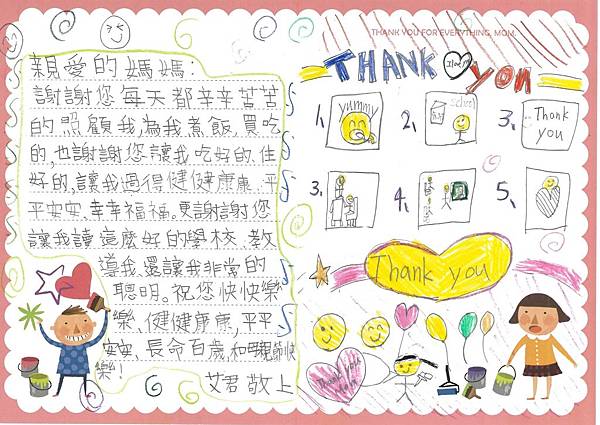 親愛的媽媽：
謝謝您每天都辛辛苦苦
的照顧我,為我煮飯,買吃
的,也謝謝您讓我吃好的、住
好的,讓我過得健健康康、平
平安安、幸幸福福。更謝謝您
讓我讀這麼好的學校、教
導我,還讓我非常的
聰明。祝您快快樂
樂、健健康康,平平
安安、長命百歲,和母親節快
樂!
艾君 敬上
THANK YOU FOR EVERYTHING, MOM.
THANK YOU
1、
yummy
2、
school
3、
Thank
you
3、
4、
5、
Thank you
Thank you